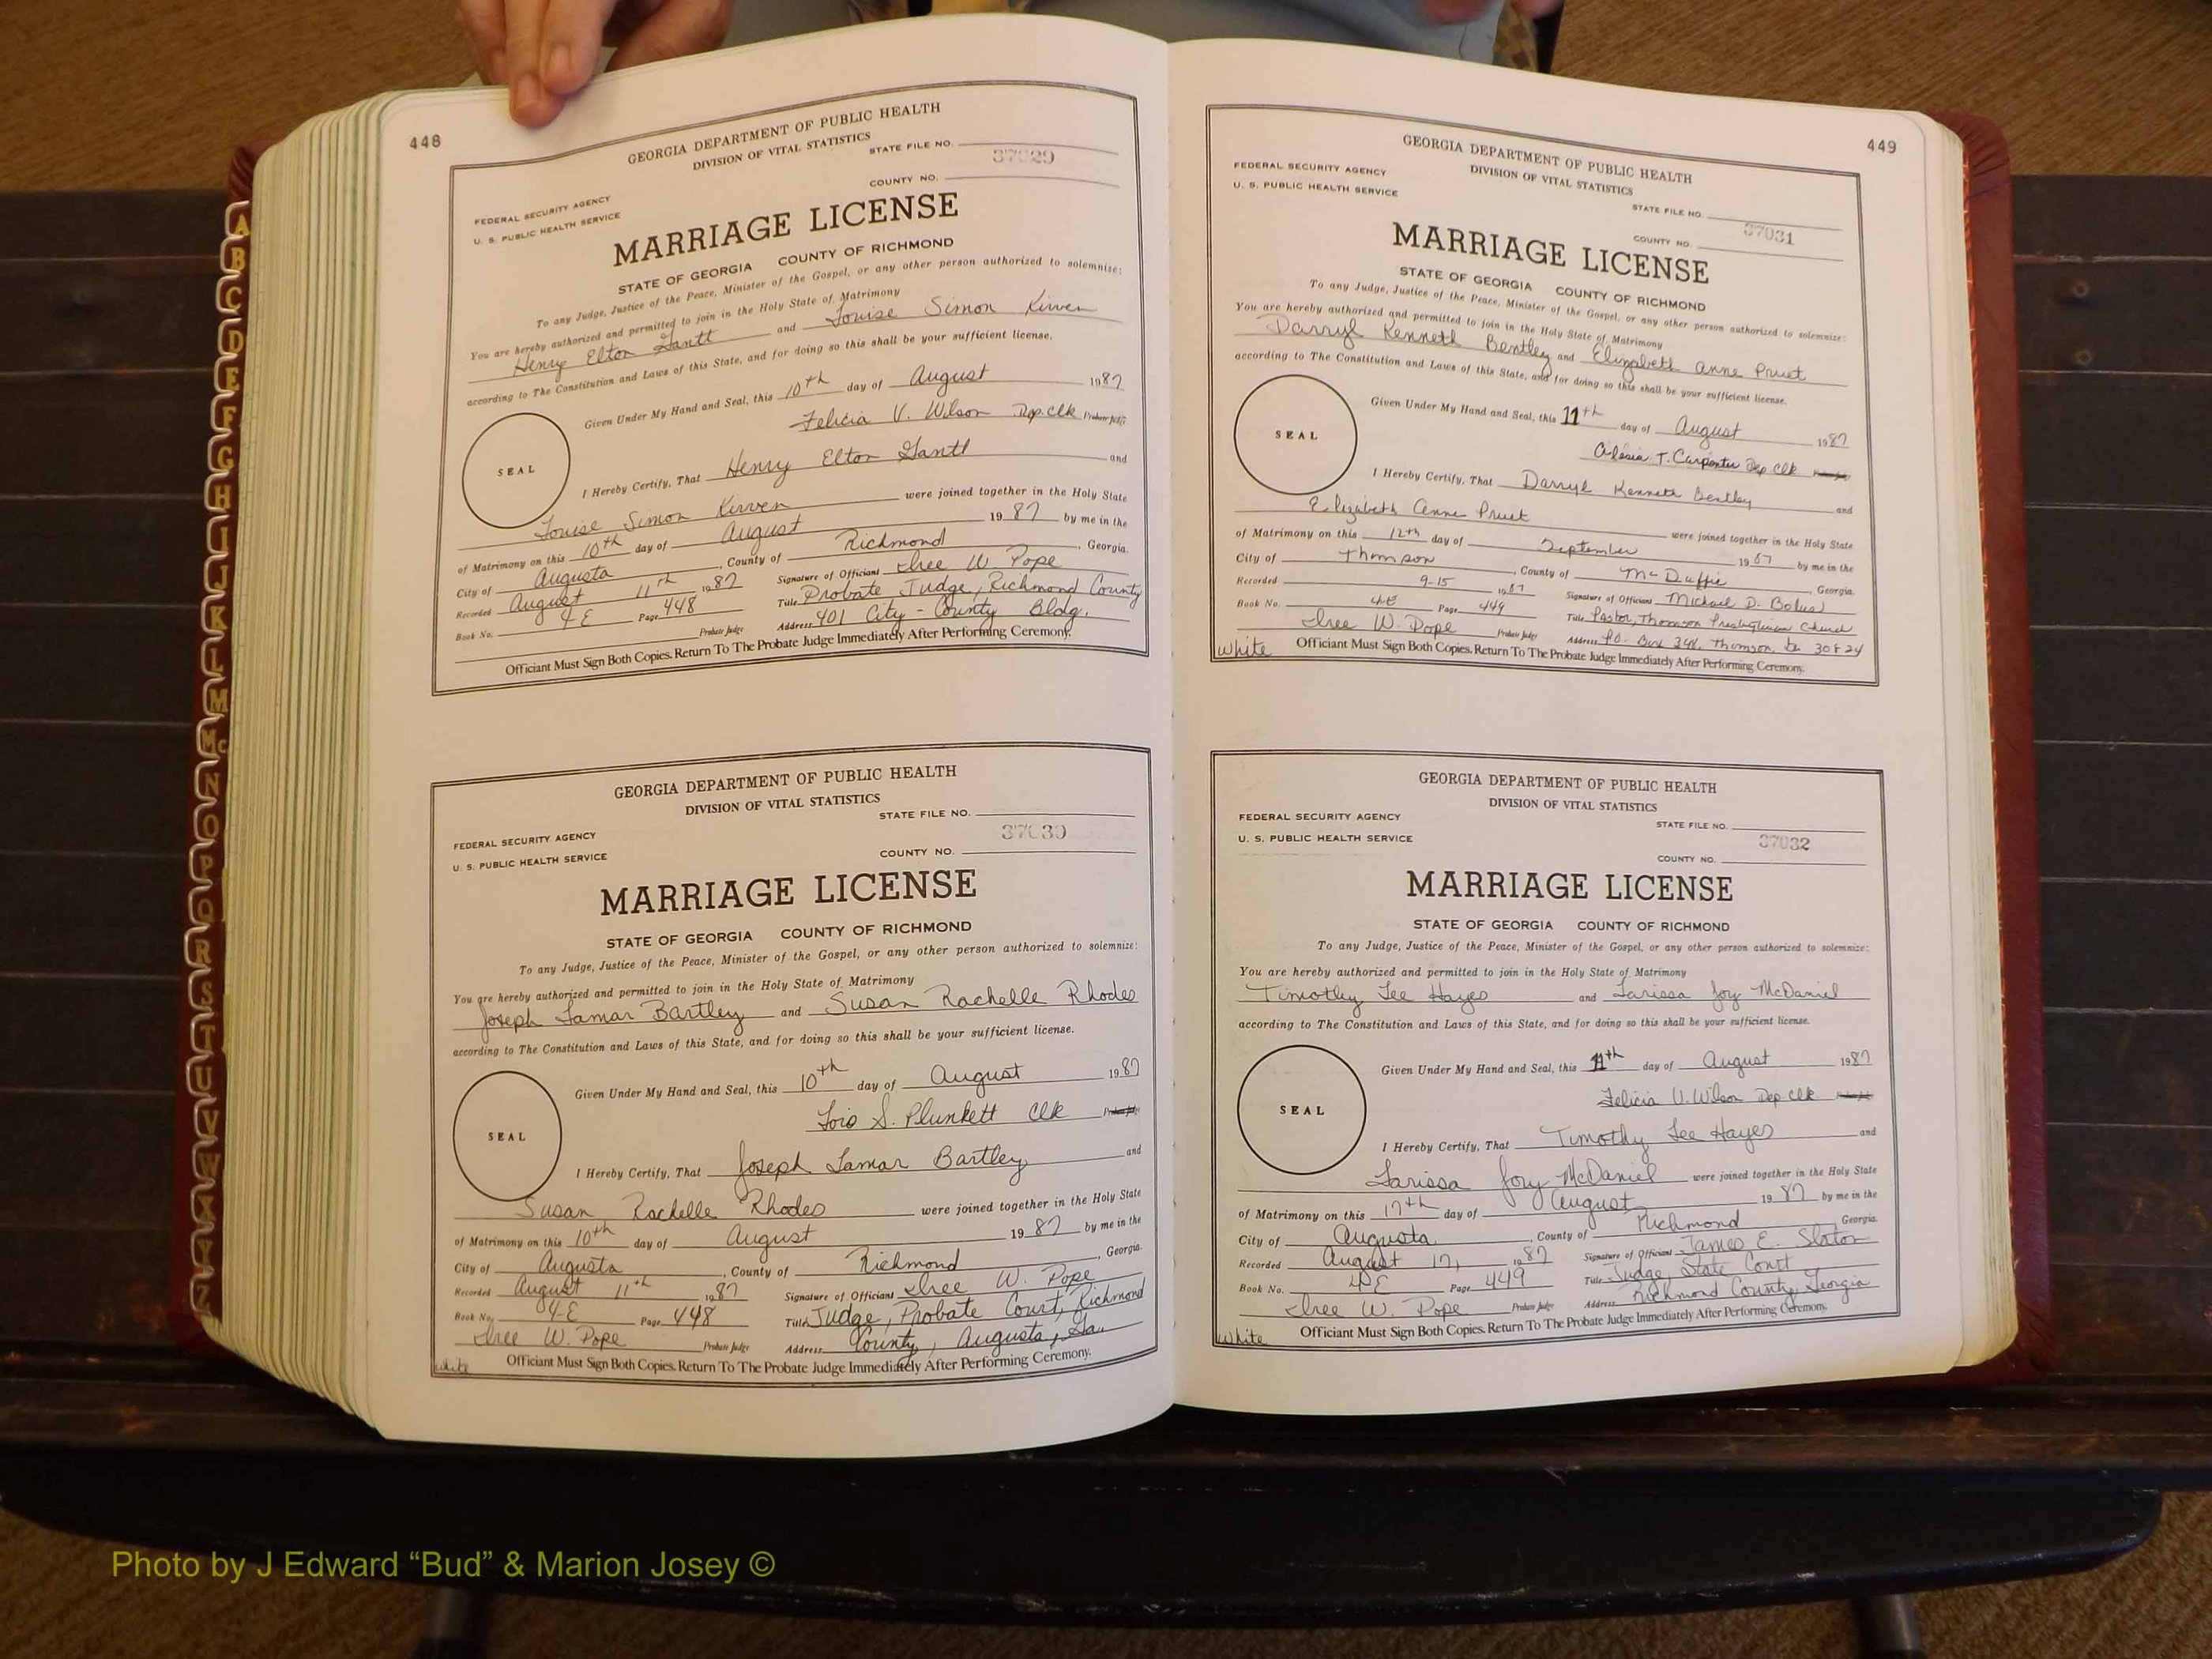 448
GEORGIA DEPARTMENT OF PUBLIC HEALTH
DIVISION OF VITAL STATISTICS
STATE FILE NO.
37029
FEDERAL SECURITY AGENCY
U. S. PUBLIC HEALTH SERVICE
COUNTY NO.
MARRIAGE LICENSE
STATE OF GEORGIA COUNTY OF RICHMOND
To any Judge, Justice of the Peace, Minister of the Gospel, or any other person authorized to solemnize:
You are hereby authorized and permitted to join in the Holy State of Matrimony
Henry Elton Gantt and Louise Simon Kirven
according to The Constitution and Laws of this State, and for doing so this shall be your sufficient license.
Given Under My Hand and Seal, this 10th day of August 1987
Felicia V. Wilson Dep. Clk Probate Judge
SEAL
I Hereby Certify, That Henry Elton Gantt and
Louise Simon Kirven were joined together in the Holy State
of Matrimony on this 10th day of August 1987 by me in the
City of Augusta, County of Richmond, Georgia.
Recorded August 11th 1987 Signature of Officiant Ihree W Pope
Book No. 4E Page 448 Title Probate Judge, Richmond County
Probate Judge Address 401 City - County Bldg.
Officiant Must Sign Both Copies. Return To The Probate Judge Immediately After Performing Ceremony.
GEORGIA DEPARTMENT OF PUBLIC HEALTH
DIVISION OF VITAL STATISTICS
STATE FILE NO.
37030
FEDERAL SECURITY AGENCY
U. S. PUBLIC HEALTH SERVICE
COUNTY NO.
MARRIAGE LICENSE
STATE OF GEORGIA COUNTY OF RICHMOND
To any Judge, Justice of the Peace, Minister of the Gospel, or any other person authorized to solemnize:
You are hereby authorized and permitted to join in the Holy State of Matrimony
Joseph Lamar Bartley and Susan Rachelle Rhodes
according to The Constitution and Laws of this State, and for doing so this shall be your sufficient license.
Given Under My Hand and Seal, this 10th day of August 1987
Lois S. Plunkett Clk Probate Judge
SEAL
I Hereby Certify, That Joseph Lamar Bartley and
Susan Rachelle Rhodes were joined together in the Holy State
of Matrimony on this 10th day of August 1987 by me in the
City of Augusta, County of Richmond, Georgia.
Recorded August 11th 1987 Signature of Officiant Ihree W. Pope
Book No. 4-E Page 448 Title Judge, Probate Court, Richmond
Ihree W. Pope Probate Judge Address County, Augusta, Ga.
white Officiant Must Sign Both Copies. Return To The Probate Judge Immediately After Performing Ceremony.
449
GEORGIA DEPARTMENT OF PUBLIC HEALTH
DIVISION OF VITAL STATISTICS
FEDERAL SECURITY AGENCY
U. S. PUBLIC HEALTH SERVICE
STATE FILE NO.
37031
COUNTY NO.
MARRIAGE LICENSE
STATE OF GEORGIA COUNTY OF RICHMOND
To any Judge, Justice of the Peace, Minister of the Gospel, or any other person authorized to solemnize:
You are hereby authorized and permitted to join in the Holy State of Matrimony
Darryl Kenneth Bentley and Elizabeth Anne Pruet
according to The Constitution and Laws of this State, and for doing so this shall be your sufficient license.
Given Under My Hand and Seal, this 11th day of August 1987
Alesia T. Carpenter Dep Clk
SEAL
I Hereby Certify, That Darryl Kenneth Bentley and
Elizabeth Anne Pruet were joined together in the Holy State
of Matrimony on this 12th day of September 1987 by me in the
City of Thomson, County of McDuffie Georgia.
Recorded 9-15 1987 Signature of Officiant Michael D. Bolus
Book No. 4E Page 449 Title Pastor, Thomson Presbyterian Church
Ihree W. Pope Probate Judge Address P.O. Box 348, Thomson, Ga 30824
White Officiant Must Sign Both Copies. Return To The Probate Judge Immediately After Performing Ceremony.
GEORGIA DEPARTMENT OF PUBLIC HEALTH
DIVISION OF VITAL STATISTICS
FEDERAL SECURITY AGENCY
U. S. PUBLIC HEALTH SERVICE
STATE FILE NO.
37032
COUNTY NO.
MARRIAGE LICENSE
STATE OF GEORGIA COUNTY OF RICHMOND
To any Judge, Justice of the Peace, Minister of the Gospel, or any other person authorized to solemnize:
You are hereby authorized and permitted to join in the Holy State of Matrimony
Timothy Lee Hayes and Larissa Joy McDaniel
according to The Constitution and Laws of this State, and for doing so this shall be your sufficient license.
Given Under My Hand and Seal, this 11th day of August 1987
Felicia V. Wilson Dep Clk
SEAL
I Hereby Certify, That Timothy Lee Hayes and
Larissa Joy McDaniel were joined together in the Holy State
of Matrimony on this 17th day of August 1987 by me in the
City of Augusta, County of Richmond, Georgia.
Recorded August 17, 1987 Signature of Officiant James E. Slaton
Book No. 4E Page 449 Title Judge, State Court
Ihree W. Pope Probate Judge Address Richmond County, Georgia
White Officiant Must Sign Both Copies. Return To The Probate Judge Immediately After Performing Ceremony.
A
B
C
D
E
F
G
H
I
J
K
L
M
Mc
N
O
P
Q
R
S
T
U
V
W
X
Y
Z
Photo by J Edward “Bud” & Marion Josey ©